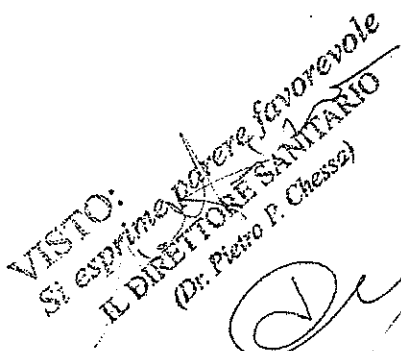 VISTO:
Si esprime parere favorevole
IL DIRETTORE SANITARIO
(Dr. Pietro P. Chessa)